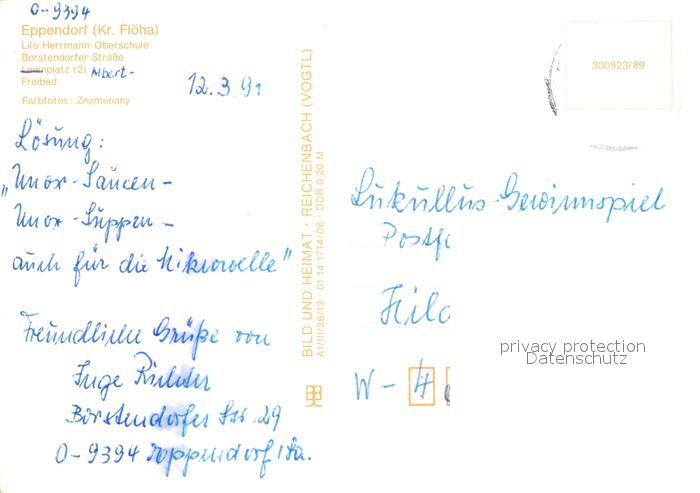 O-9394
Eppendorf (Kr. Flöha)
Lilo-Herrmann-Oberschule
Borstendorfer Straße
Leninplatz (2) Albert-
Freibad
Farbfotos: Znamenany
12.3.91
Lösung:
„Unox-Saucen-
Unox-Suppen-
auch für die Mikrowelle"
Freundliche Grüße von
Inge Richter
Borstendorfer Str. 29
O-9394 Eppendorf/Sa.
BILD UND HEIMAT · REICHENBACH (VOGTL)
A1/III/26/13 · 01 14 1714/06 · DDR 0,20 M
300923/89
Lukullus-Gewinnspiel
Postf
Hild
W-4
privacy protection
Datenschutz